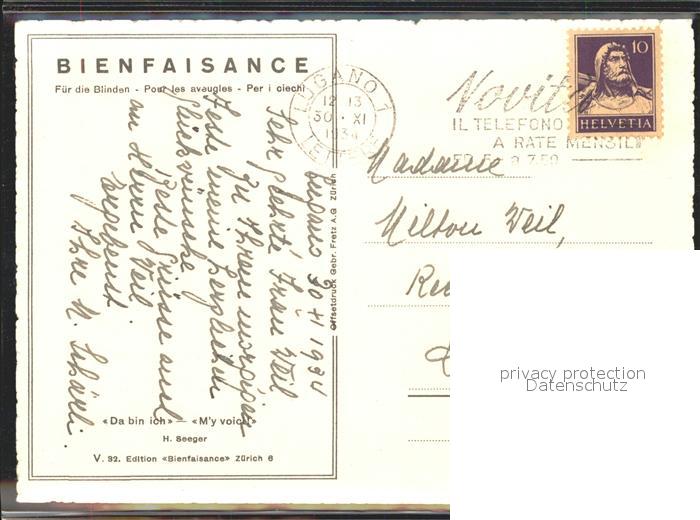 BIENFAISANCE
Für die Blinden - Pour les aveugles - Per i ciechi
LUGANO 1
12 13
30 · XI
1934
LETTERE
Novità
IL TELEFONO
A RATE MENSILI
7.50
10
HELVETIA
Madame
Milton Weil,
Lugano 30 XI 1934
Sehr geehrte Frau Weil
Zu Ihrem morgigen
Feste meine herzlichen
Glückwünsche
Beste Grüsse auch
an Herrn Weil
Ergebenst
Ihre M. Schärli.
Offsetdruck Gebr. Fretz A.G. Zürich
«Da bin ich» — «M'y voici!»
H. Seeger
V. 32. Edition «Bienfaisance» Zürich 6
privacy protection
Datenschutz